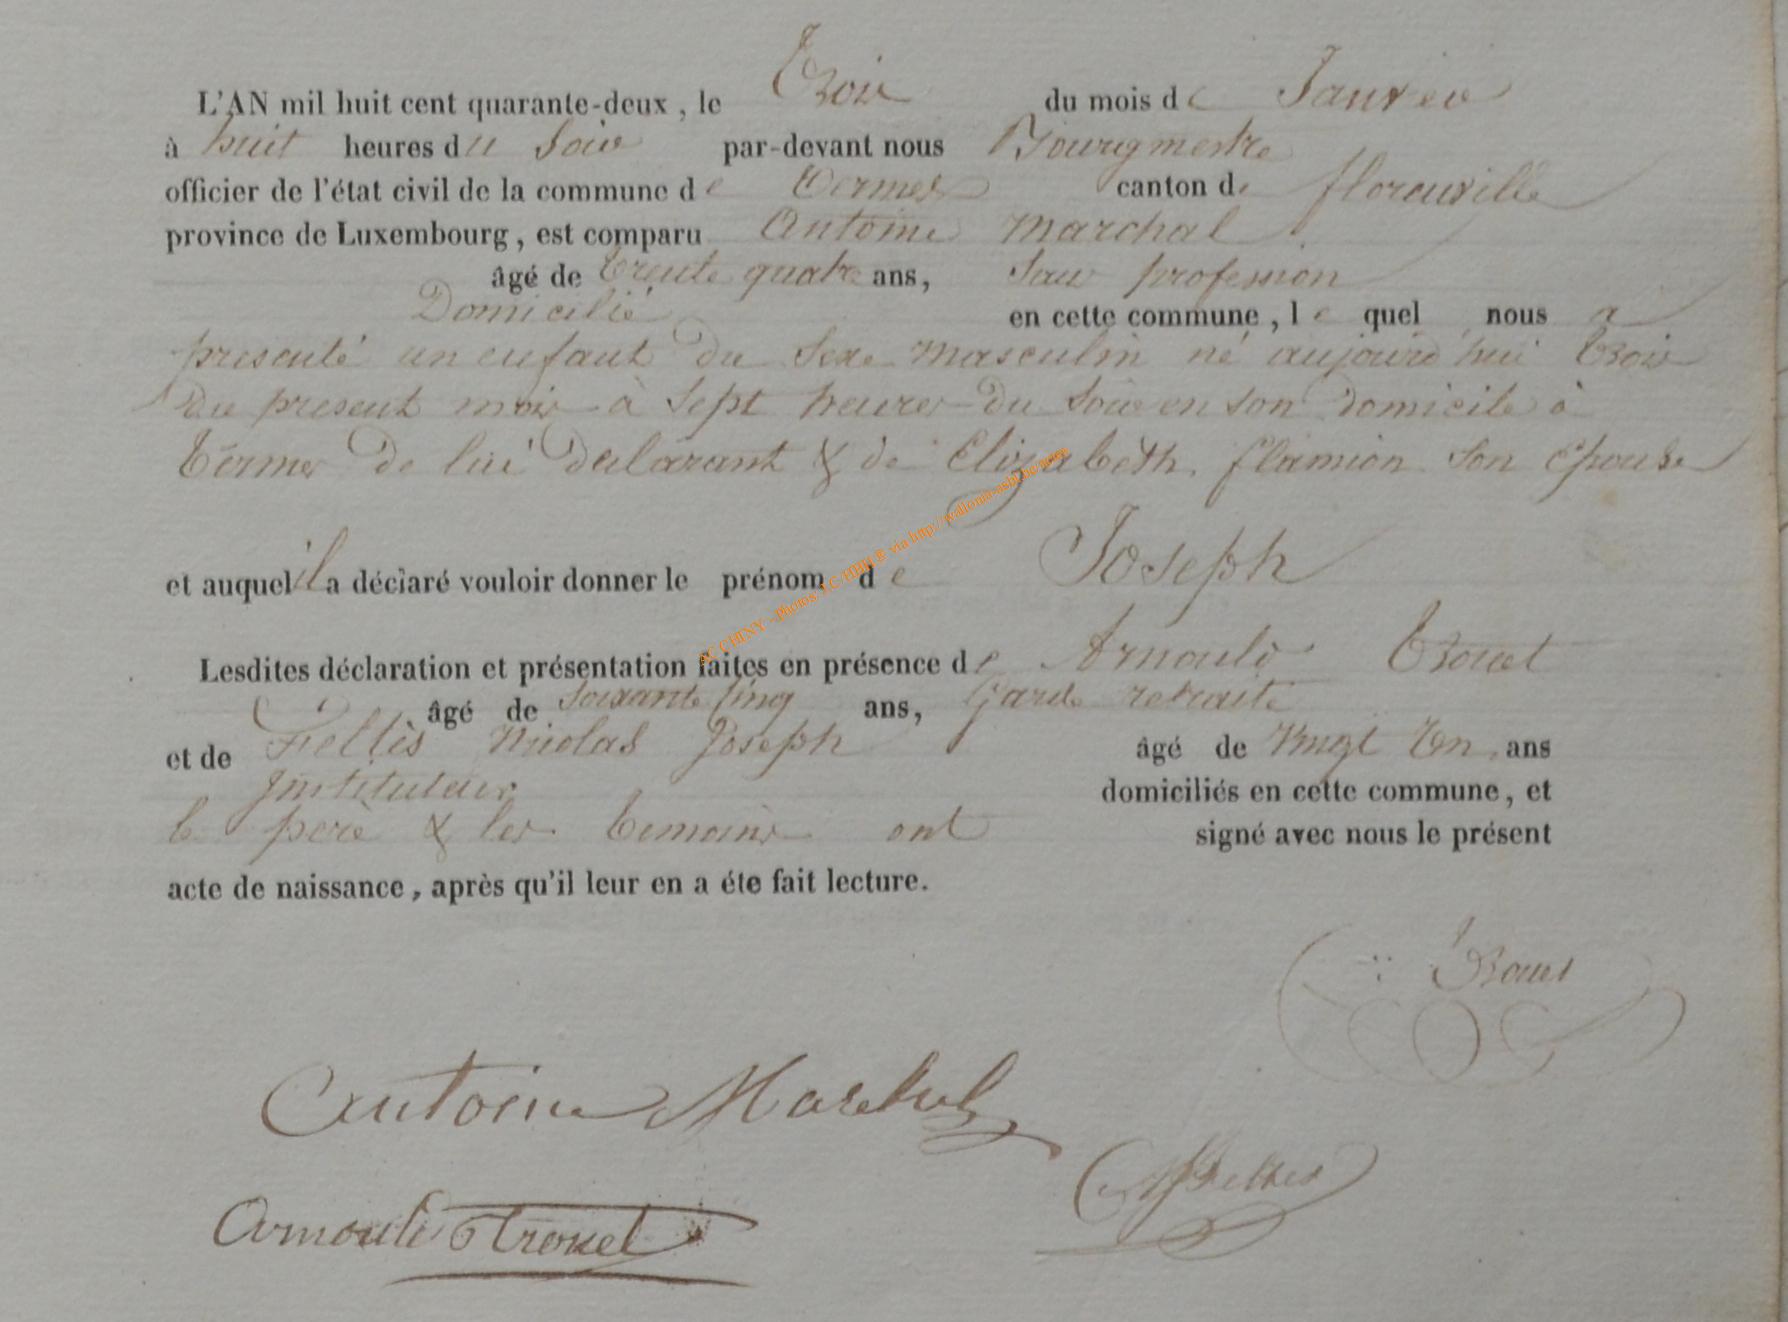 L'AN mil huit cent quarante-deux, le Trois du mois de Janvier
à huit heures du Soir par-devant nous Bourgmestre
officier de l'état civil de la commune de Termes canton de florenville
province de Luxembourg, est comparu Antoine Marchal
âgé de Trente quatre ans, Sans profession
Domicilié en cette commune, le quel nous a
presenté un enfant du Sexe masculin né aujourd'hui Trois
du present mois à Sept heures du Soir en son domicile à
Termes de lui declarant & de Elizabeth flamion Son épouse
et auquel il a déclaré vouloir donner le prénom de Joseph
Lesdites déclaration et présentation faites en présence de Arnould Trouet
âgé de Soixante Cinq ans, Garde retraité
et de Fellès Nicolas Joseph âgé de Vingt Un ans
Instituteur domiciliés en cette commune, et
le pere & les temoins ont signé avec nous le présent
acte de naissance, après qu'il leur en a éte fait lecture.
Antoine Marchal
Arnould Trouet
AC CHINY - Photos J.C. HBH © via http://wallonia-asbl.be/actes